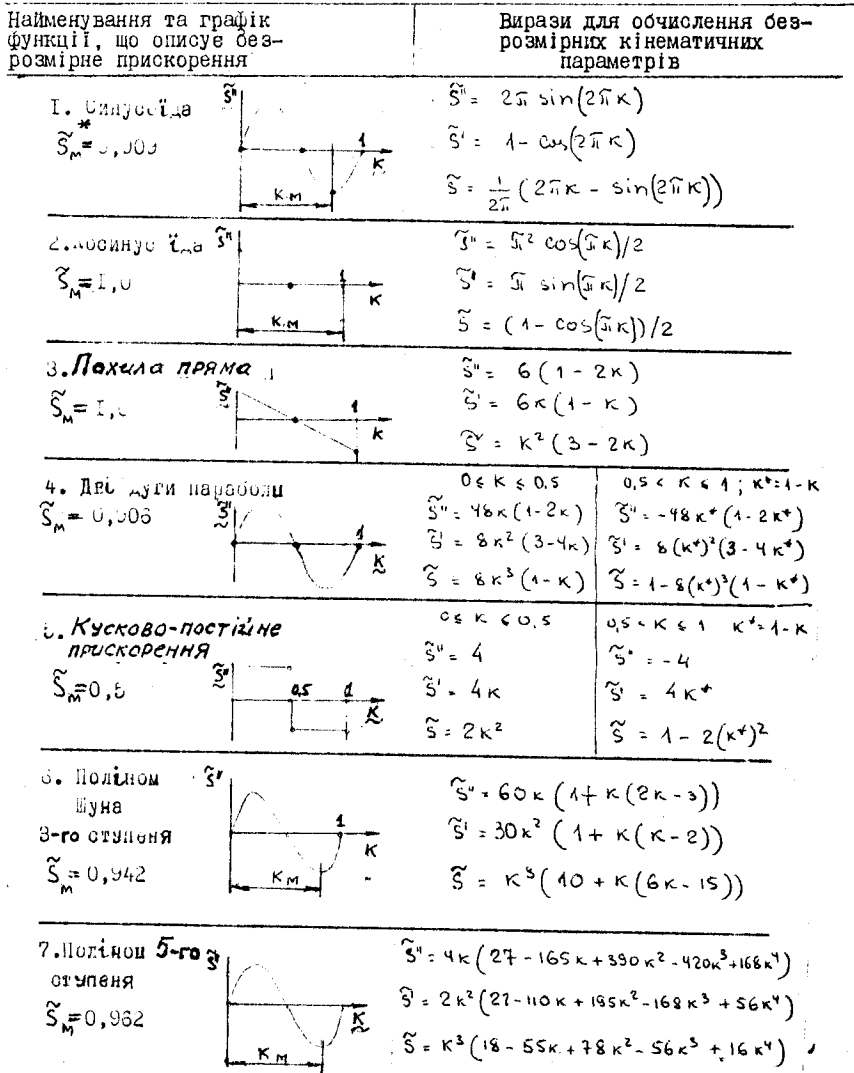 Найменування та графік
функції, що описує без-
розмірне прискорення
Вирази для обчислення без-
розмірних кінематичних
параметрів
I. Синусоїда
S̃ₘ* = 0,909
S̃"
1
K
K.M
S̃" = 2π sin(2πK)
S̃' = 1 - cos(2πK)
S̃ = 1/2π (2πK - sin(2πK))
2. Косинусоїда
S̃ₘ = I,0
S̃"
1
K
K.M
S̃" = π² cos(πK)/2
S̃' = π sin(πK)/2
S̃ = (1 - cos(πK))/2
3. Похила пряма
S̃ₘ = I,
S̃"
1
K
S̃" = 6(1 - 2K)
S̃' = 6K(1 - K)
S̃ = K²(3 - 2K)
4. Дві дуги параболи
S̃ₘ = 0,906
S̃"
1
K
0 ≤ K ≤ 0,5
S̃" = 48K(1-2K)
S̃' = 8K²(3-4K)
S̃ = 8K³(1-K)
0,5 < K ≤ 1; K*=1-K
S̃" = -48K*(1-2K*)
S̃' = 8(K*)²(3-4K*)
S̃ = 1-8(K*)³(1-K*)
Кусково-постійне
прискорення
S̃ₘ = 0,5
S̃"
0,5
1
K
0 ≤ K ≤ 0,5
S̃" = 4
S̃' = 4K
S̃ = 2K²
0,5 < K ≤ 1 K*=1-K
S̃" = -4
S̃' = 4K*
S̃ = 1 - 2(K*)²
6. Поліном
Шуна
3-го ступеня
S̃ₘ = 0,942
S̃"
1
K
K M
S̃" = 60K(1+K(2K-3))
S̃' = 30K²(1+K(K-2))
S̃ = K³(10+K(6K-15))
7. Поліном 5-го
ступеня
S̃ₘ = 0,962
S̃"
K
K M
S̃" = 4K(27-165K+390K²-420K³+168K⁴)
S̃' = 2K²(27-110K+195K²-168K³+56K⁴)
S̃ = K³(18-55K+78K²-56K³+16K⁴)